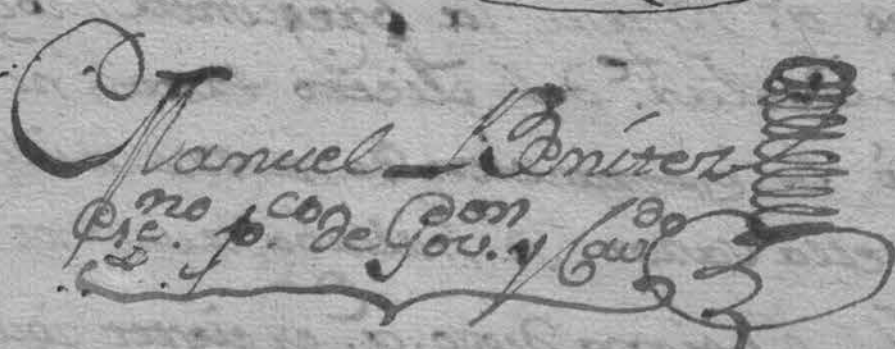 Manuel Benitez
Esc.no p.co de Gov.on y Cav.do